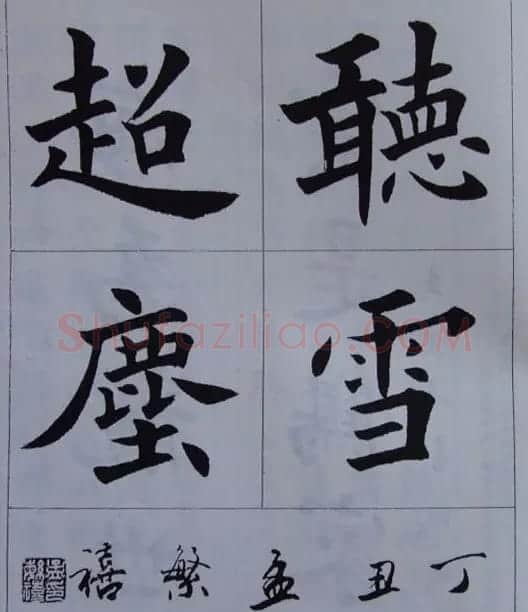 聽雪
超塵
丁丑孟繁禧
Shufaziliao.COM